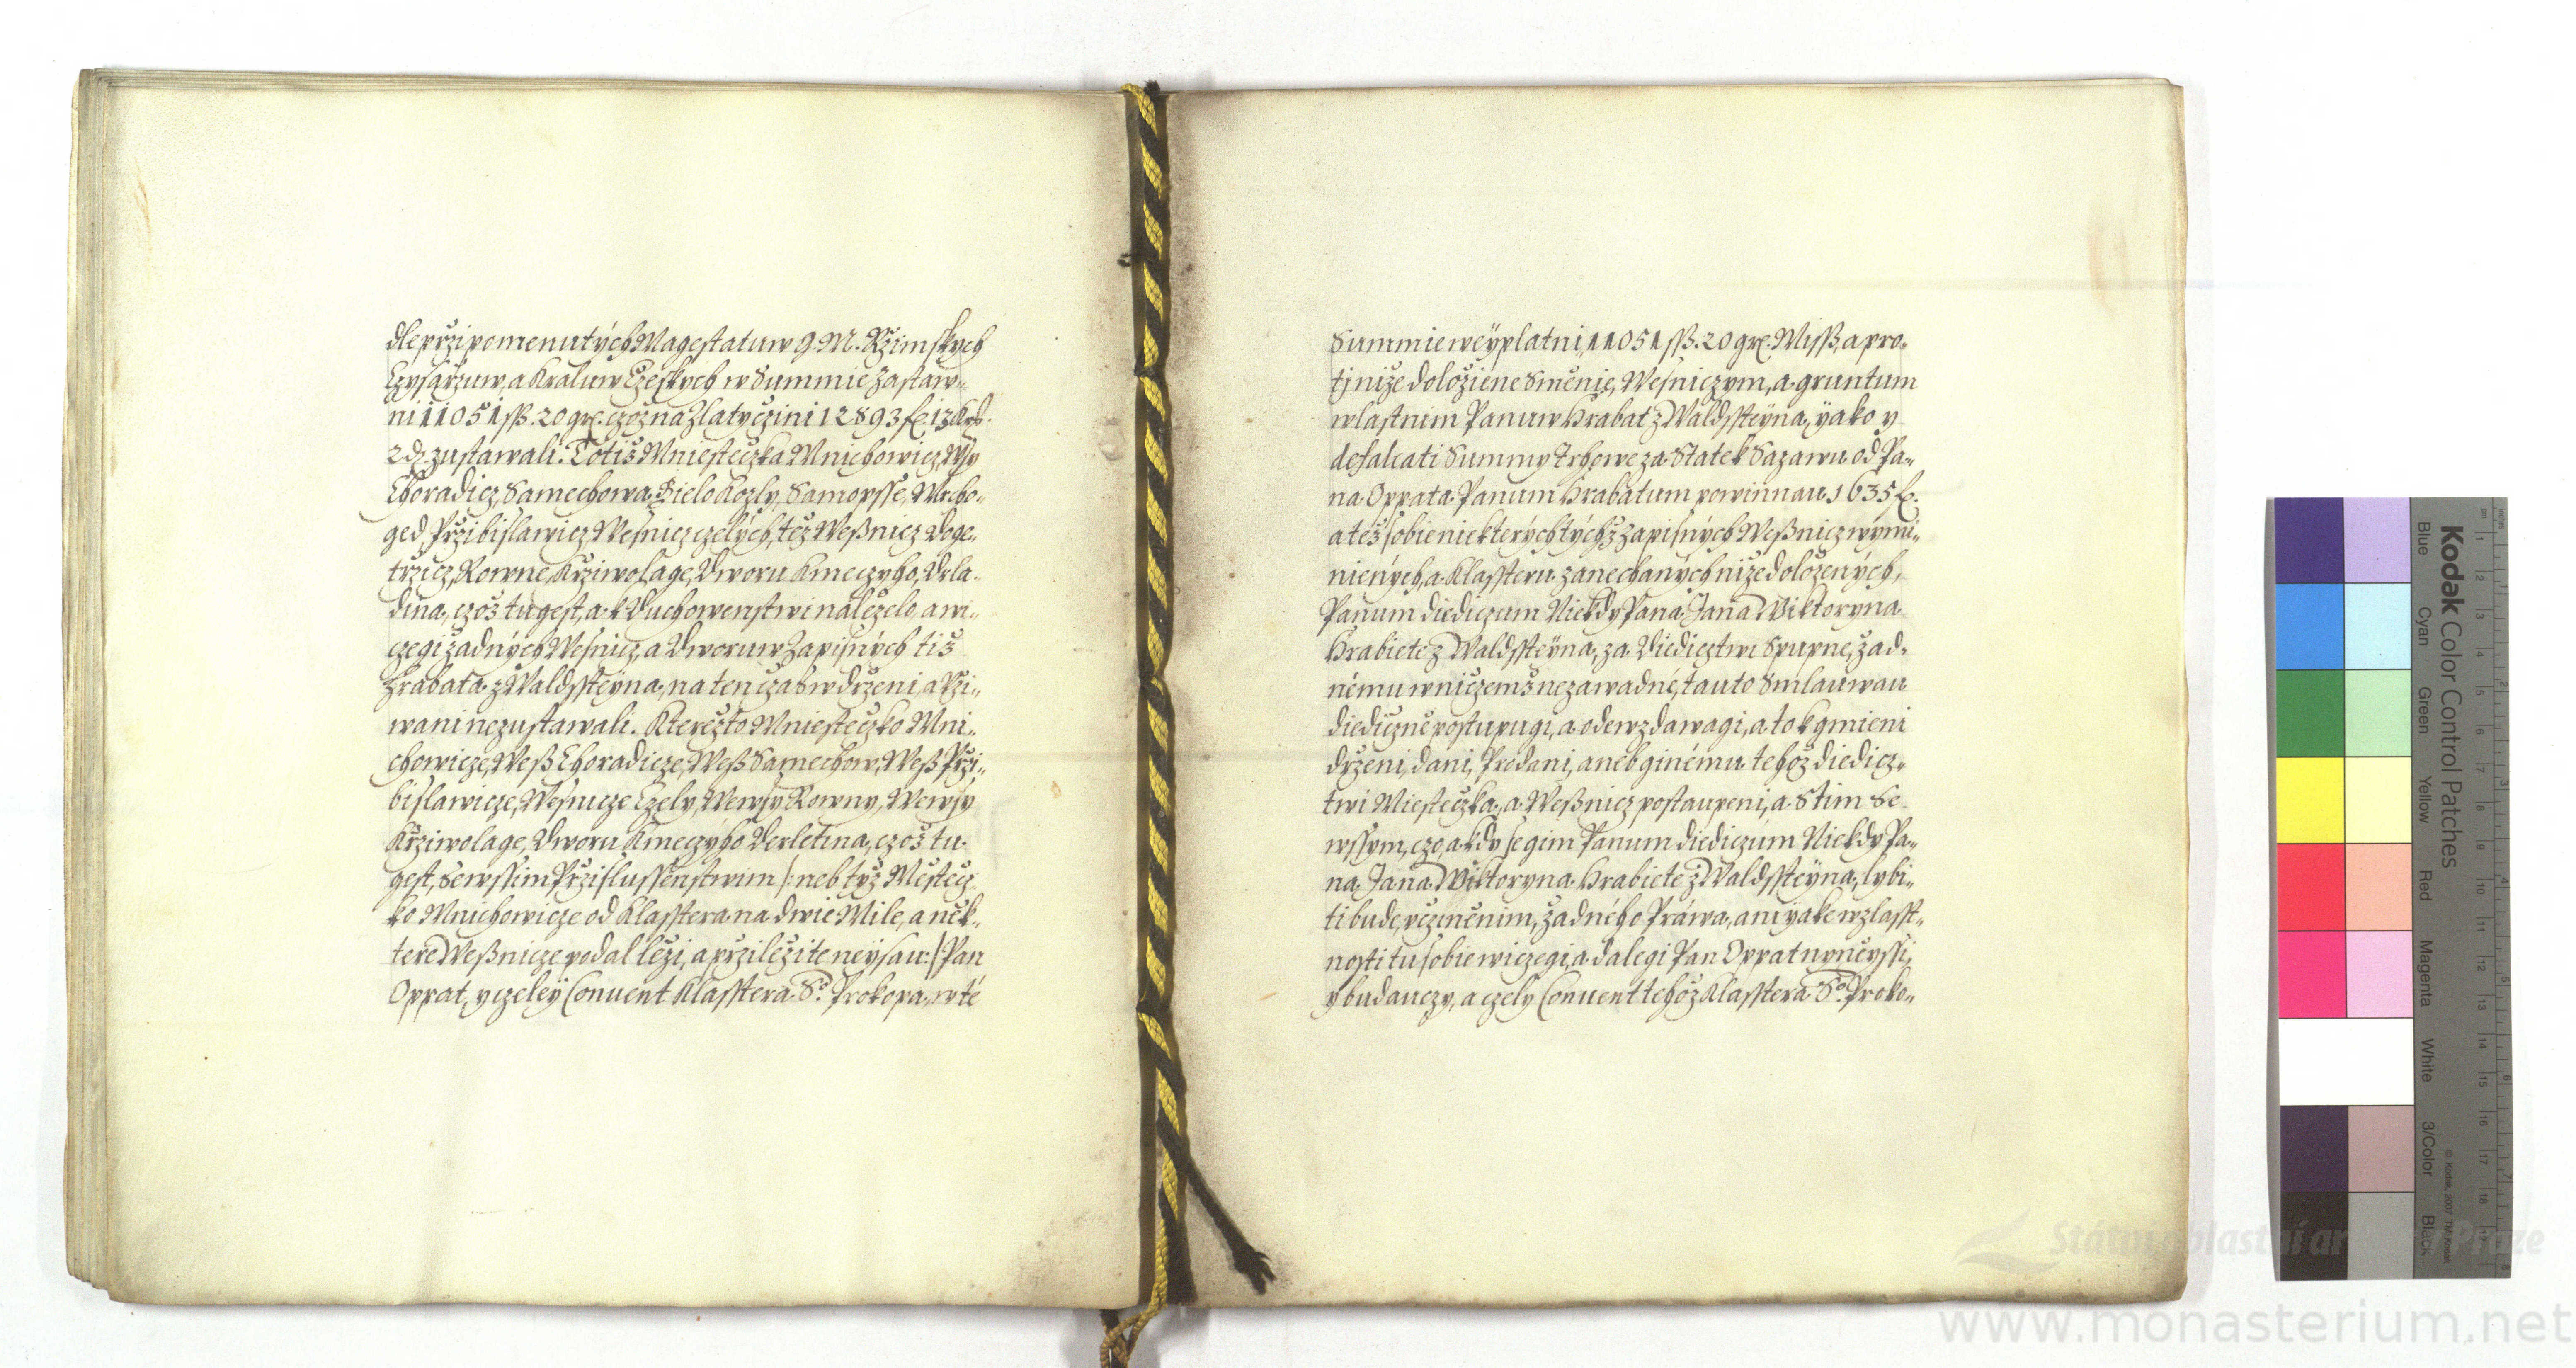 dle przipomenutých Magestatuw G. M. Rzimskych
Czysařzuw, a Kraluw Czeskych w Summie Zastaw-
ni 11051 sß. 20 gr. czož na Zlaty czini 12893 fl. 13 kr.
2 d. zustawali. Totiž Mniesteczka Mnichowicz, Wsy
Choradicz, Samechowa, Bielokozly, Samopsse, Mrcho-
ged, Przibislawicz, Wesnicz czelých, též Weßnicz Woge-
trzicz, Rowne, Krziwolage, Dworu Kmeczyho, Drla-
dina, czož tu gest, a k Duchowenstwi náleželo, a wi-
czegi žadných Wesnicz, a Dworuw Zapisných tiž
Hrabata z Waldssteyna, na ten čzas w drženi, a Uži-
wani nezustawali. Kterežto Mniesteczko Mni-
chowicze, Weß Choradicze, Weß Samechow, Weß Przi-
bislawicze, Wesnicze Czely, We wsy Rowny, We wsy
Krziwolage, Dworu Kmeczýho Derletina, czož tu
gest, se wssim Przislussenstwim /: neb týž Městecz-
ko Mnichowicze od Klasstera na dwie Mile, a něk-
tere Weßnicze podal leži, a prziležite neysau :/ Pan
Oppat, y czeleÿ Conuent Klasstera S. Prokopa, w té
Summie weÿplatni, 11051 sß. 20 gr. Miss. a pro-
tj niže doložiene Směnie, Wesniczym, a gruntum
wlastnim Panuw Hrabat z Waldssteÿna, ÿako y
defalcati Summy trhowe za Statek Sazawu od Pa-
na Oppata Panum Hrabatum powinnau 1635 fl.
a též sobie niekterých tých z Zapisných Weßnicz wymi-
niených, a Klassteru zanechaných niže doložených,
Panum diediczum Niekdy Pana Jana Wiktoryna
Hrabiete z Waldssteÿna, za Diedicztwi Spupne, žad-
nému w niczemž nezawadné, tauto Smlauwau
diediczně postupugi, a odewzdawagi, a to k gmieni
drženi, dani, Prodani, aneb ginému tehož diedicz-
twi Miesteczka, a Weßnicz postaupeni, a S tim Se
wssym, czo a kdy se gim Panúm diediczúm Niekdy Pa-
na Jana Wiktoryna Hrabiete z Waldssteÿna, lybi-
ti bude, učziněnim, žadného Práwa, ani ÿake wzlasst-
nosti tu sobie wiczegi, a dalegi Pan Oppat nyněyssi,
y budauczy, a czely Conuent tehož Klasstera S. Proko-
Kodak Color Control Patches
Blue
Cyan
Green
Yellow
Red
Magenta
White
3/Color
Black
© Kodak, 2007 TM: Kodak
www.monasterium.net